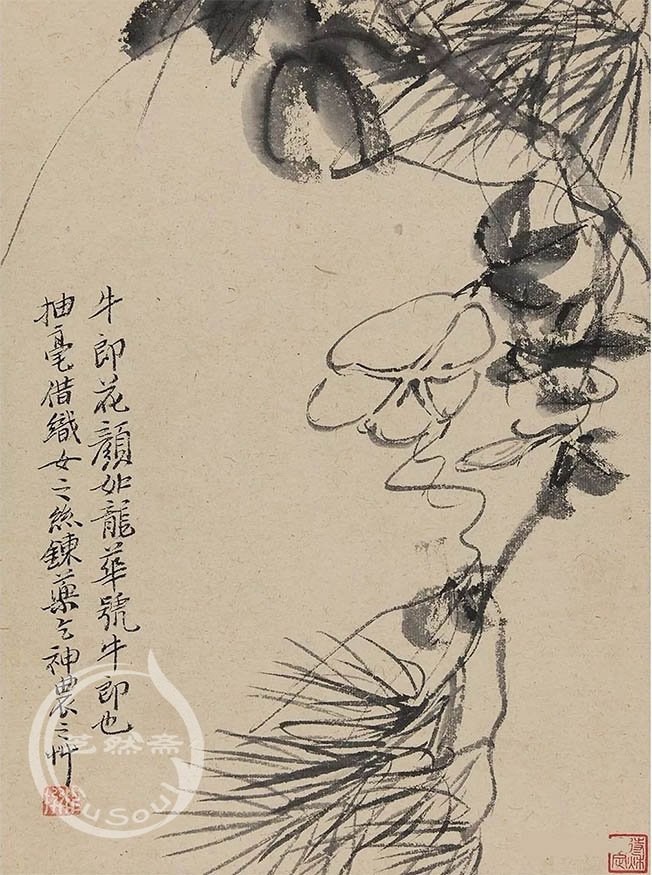 牛郎花顏如龍華號牛郎也
抽毫借織女之絲鍊藥乞神農之艸